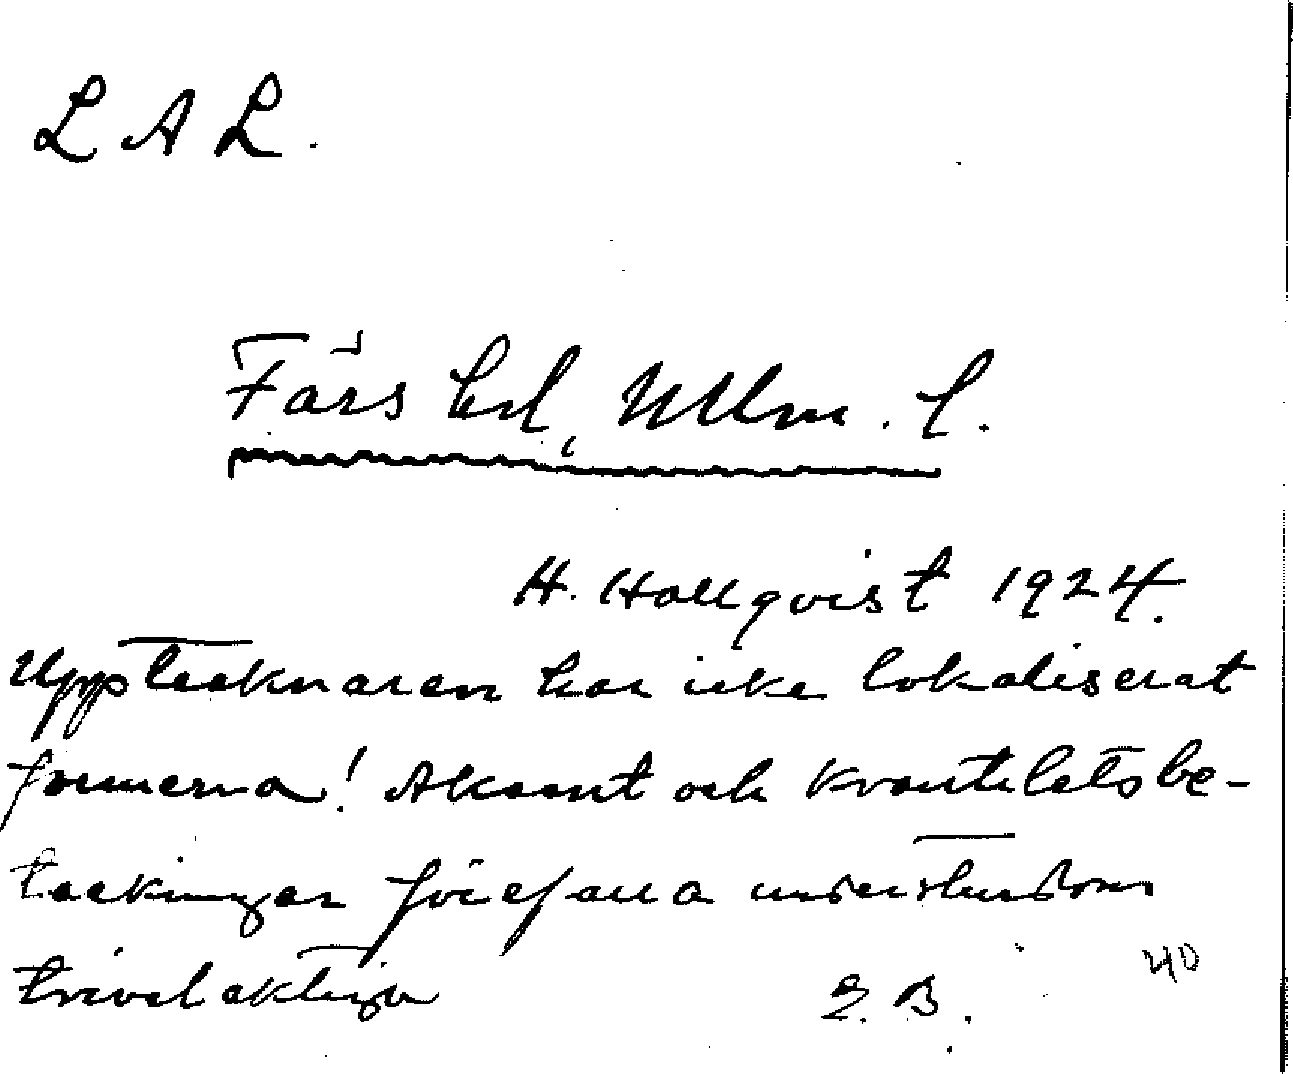 L A L.
Färs hd, Mlm. l.
H. Hallqvist 1924.
Upptecknaren har icke lokaliserat
formerna! Akcent och kvantitetsbe-
teckningar förefalla understundom
tvivelaktiga
40